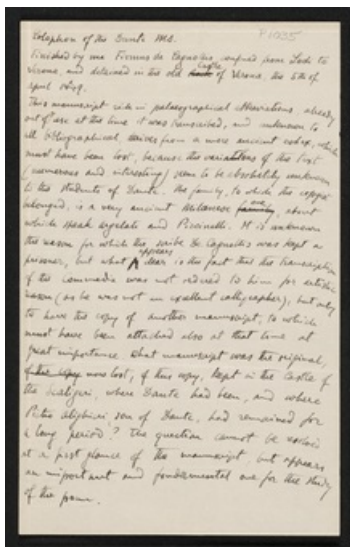 P1035
Colophon of the Dante MS.
Finished by me Firmus de Cagnosis confined from Lodi to
Verona, and detained in the old Castle of Verona, the 5th of
April
This manuscript rich in palaeographical abbreviations, already
out of use at the time it was transcribed, and unknown to
all bibliographical, derives from a more ancient codex, which
must have been lost, because the variations of the text
(numerous and interesting) seem to be absolutely unknown
to the students of Dante. The family, to which the copyist
belonged, is a very ancient Milanese one, about
which speak Argelate and Piccinelli. It is unknown
the reason for which the scribe de Cagnosis was kept a
prisoner, but what appears clear is the fact that the transcription
of the commedia was not ordered to him for artistic
reason (as he was not an excellent calligrapher), but only
to have the copy of another manuscript, to which
must have been attached also at that time a
great importance. What manuscript was the original,
now lost, of this copy, kept in the Castle of
the Scaligeri, where Dante had been, and where
Pietro Alighieri, son of Dante, had remained for
a long period? The question cannot be resolved
at a first glance of the manuscript, but appears
an important and fondermental one for the study
of the poem.